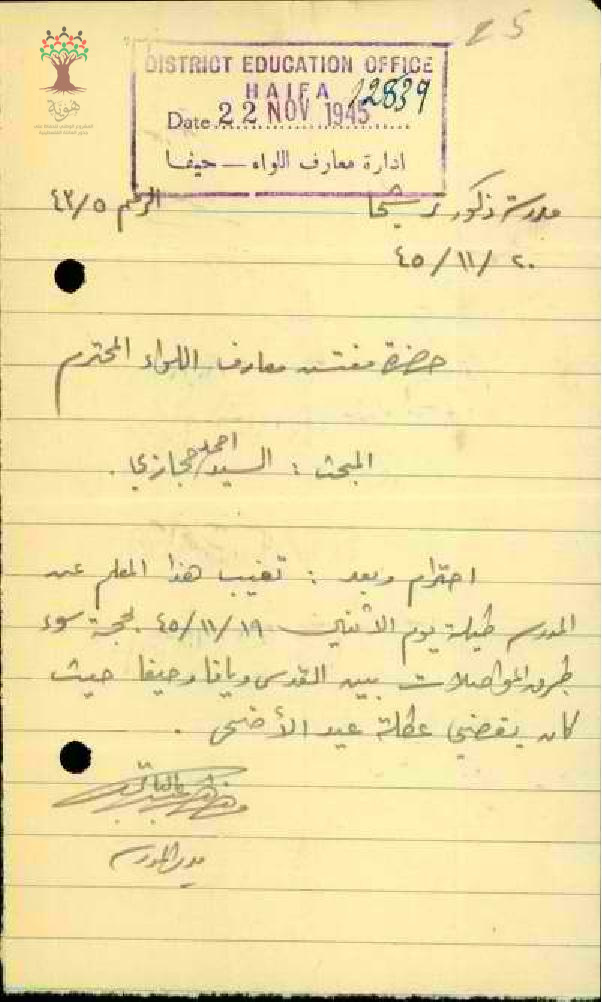 25
DISTRICT EDUCATION OFFICE
HAIFA
12839
Date 22 NOV 1945
ادارة معارف اللواء — حيفا
هوية
مدرسة ذكور ترشيحا
الرقم ٤٣/٥
٢٠/١١/٤٥
حضرة مفتش معارف اللواء المحترم
المبحث : السيد احمد حجازي .
احترام وبعد : تغيب هذا المعلم عن
المدرسة طيلة يوم الاثنين ١٩/١١/٤٥ بحجة سوء
طرق المواصلات بين القدس ويافا وحيفا حيث
كان يقضي عطلة عيد الأضحى .
مدير المدرسة